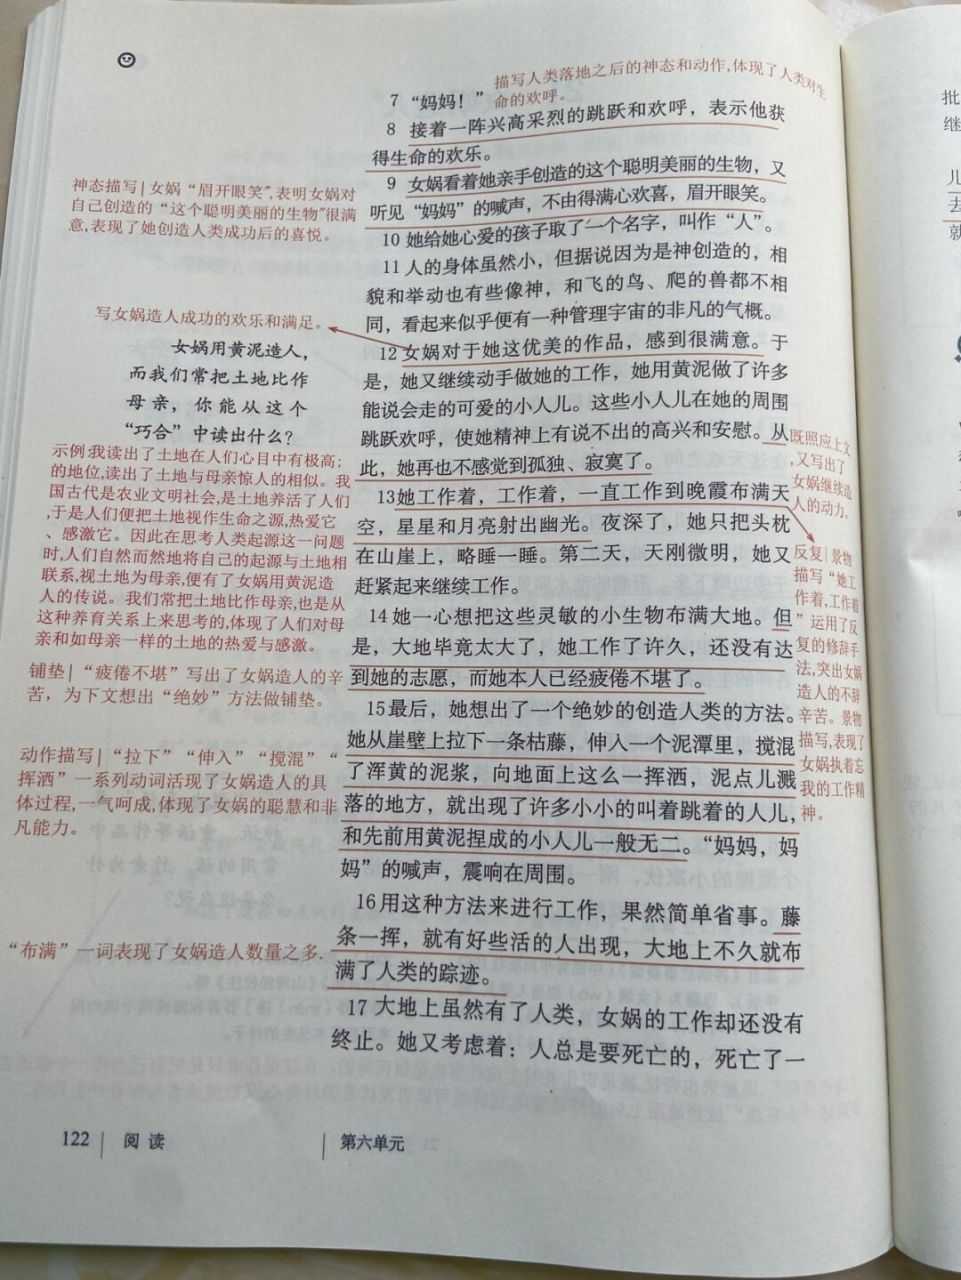 描写人类落地之后的神态和动作,体现了人类对生
命的欢呼。
7 “妈妈！”
8 接着一阵兴高采烈的跳跃和欢呼，表示他获
得生命的欢乐。
9 女娲看着她亲手创造的这个聪明美丽的生物，又
听见“妈妈”的喊声，不由得满心欢喜，眉开眼笑。
10 她给她心爱的孩子取了一个名字，叫作“人”。
11 人的身体虽然小，但据说因为是神创造的，相
貌和举动也有些像神，和飞的鸟、爬的兽都不相
同，看起来似乎便有一种管理宇宙的非凡的气概。
12 女娲对于她这优美的作品，感到很满意。于
是，她又继续动手做她的工作，她用黄泥做了许多
能说会走的可爱的小人儿。这些小人儿在她的周围
跳跃欢呼，使她精神上有说不出的高兴和安慰。从
此，她再也不感觉到孤独、寂寞了。
13 她工作着，工作着，一直工作到晚霞布满天
空，星星和月亮射出幽光。夜深了，她只把头枕
在山崖上，略睡一睡。第二天，天刚微明，她又
赶紧起来继续工作。
14 她一心想把这些灵敏的小生物布满大地。但
是，大地毕竟太大了，她工作了许久，还没有达
到她的志愿，而她本人已经疲倦不堪了。
15 最后，她想出了一个绝妙的创造人类的方法。
她从崖壁上拉下一条枯藤，伸入一个泥潭里，搅混
了浑黄的泥浆，向地面上这么一挥洒，泥点儿溅
落的地方，就出现了许多小小的叫着跳着的人儿，
和先前用黄泥捏成的小人儿一般无二。“妈妈，妈
妈”的喊声，震响在周围。
16 用这种方法来进行工作，果然简单省事。藤
条一挥，就有好些活的人出现，大地上不久就布
满了人类的踪迹。
17 大地上虽然有了人类，女娲的工作却还没有
终止。她又考虑着：人总是要死亡的，死亡了一
神态描写|女娲“眉开眼笑”,表明女娲对
自己创造的“这个聪明美丽的生物”很满
意,表现了她创造人类成功后的喜悦。
写女娲造人成功的欢乐和满足。
女娲用黄泥造人，
而我们常把土地比作
母亲，你能从这个
“巧合”中读出什么？
示例:我读出了土地在人们心目中有极高;
的地位,读出了土地与母亲惊人的相似。我
国古代是农业文明社会,是土地养活了人们
,于是人们便把土地视作生命之源,热爱它
、感激它。因此在思考人类起源这一问题
时,人们自然而然地将自己的起源与土地相
联系,视土地为母亲,便有了女娲用黄泥造
人的传说。我们常把土地比作母亲,也是从
这种养育关系上来思考的,体现了人们对母
亲和如母亲一样的土地的热爱与感激。
铺垫|“疲倦不堪”写出了女娲造人的辛
苦，为下文想出“绝妙”方法做铺垫。
动作描写|“拉下”“伸入”“搅混”“
挥洒”一系列动词活现了女娲造人的具
体过程,一气呵成,体现了女娲的聪慧和非
凡能力。
“布满”一词表现了女娲造人数量之多.
既照应上文
,又写出了
女娲继续造
人的动力。
反复|景物
描写“她工
作着,工作着
”运用了反
复的修辞手
法,突出女娲
造人的不辞
辛苦。景物
描写,表现了
女娲执着忘
我的工作精
神。
122
阅读
第六单元
批
继
儿
去
就